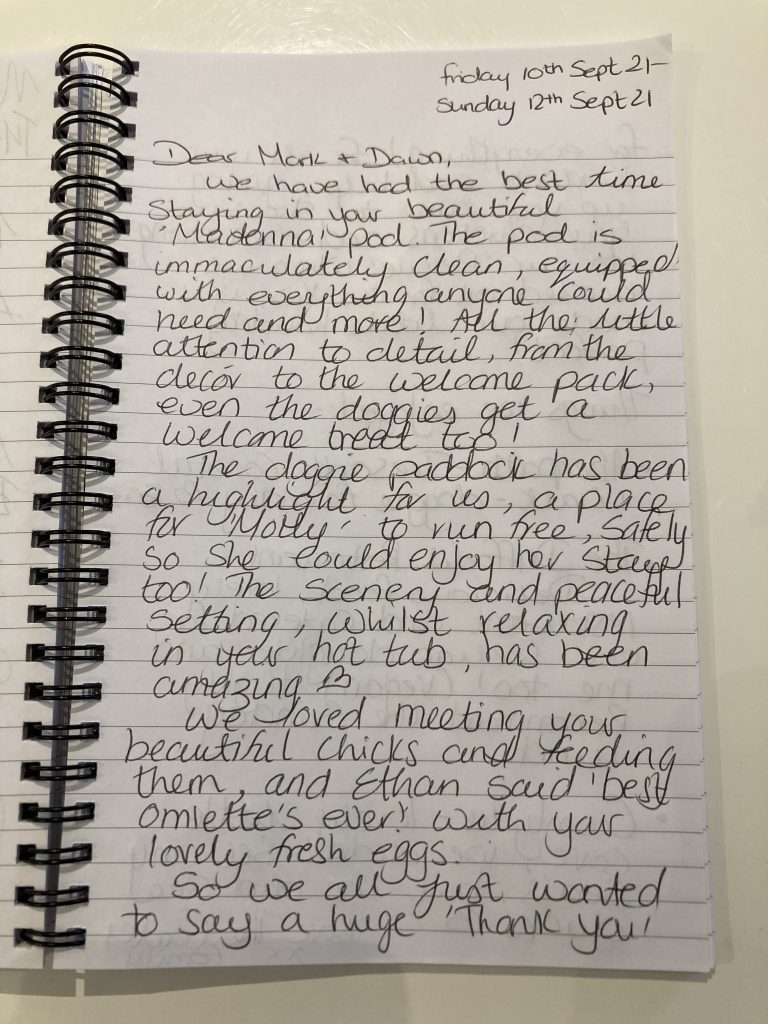 friday 10th Sept 21-
Sunday 12th Sept 21
Dear Mark + Dawn,
We have had the best time
staying in your beautiful
'Madenna' pod. The pod is
immaculately clean, equipped
with everything anyone could
need and more! All the little
attention to detail, from the
decór to the welcome pack,
even the doggies get a
welcome treat too!
The doggie paddock has been
a highlight for us, a place
for 'Molly' to run free, safely
so she could enjoy her stay
too! The scenery and peaceful
setting, whilst relaxing
in your hot tub, has been
amazing
We loved meeting your
beautiful chicks and feeding
them, and Ethan said 'best
omlette's ever!' with your
lovely fresh eggs.
So we all just wanted
to say a huge 'Thank you'